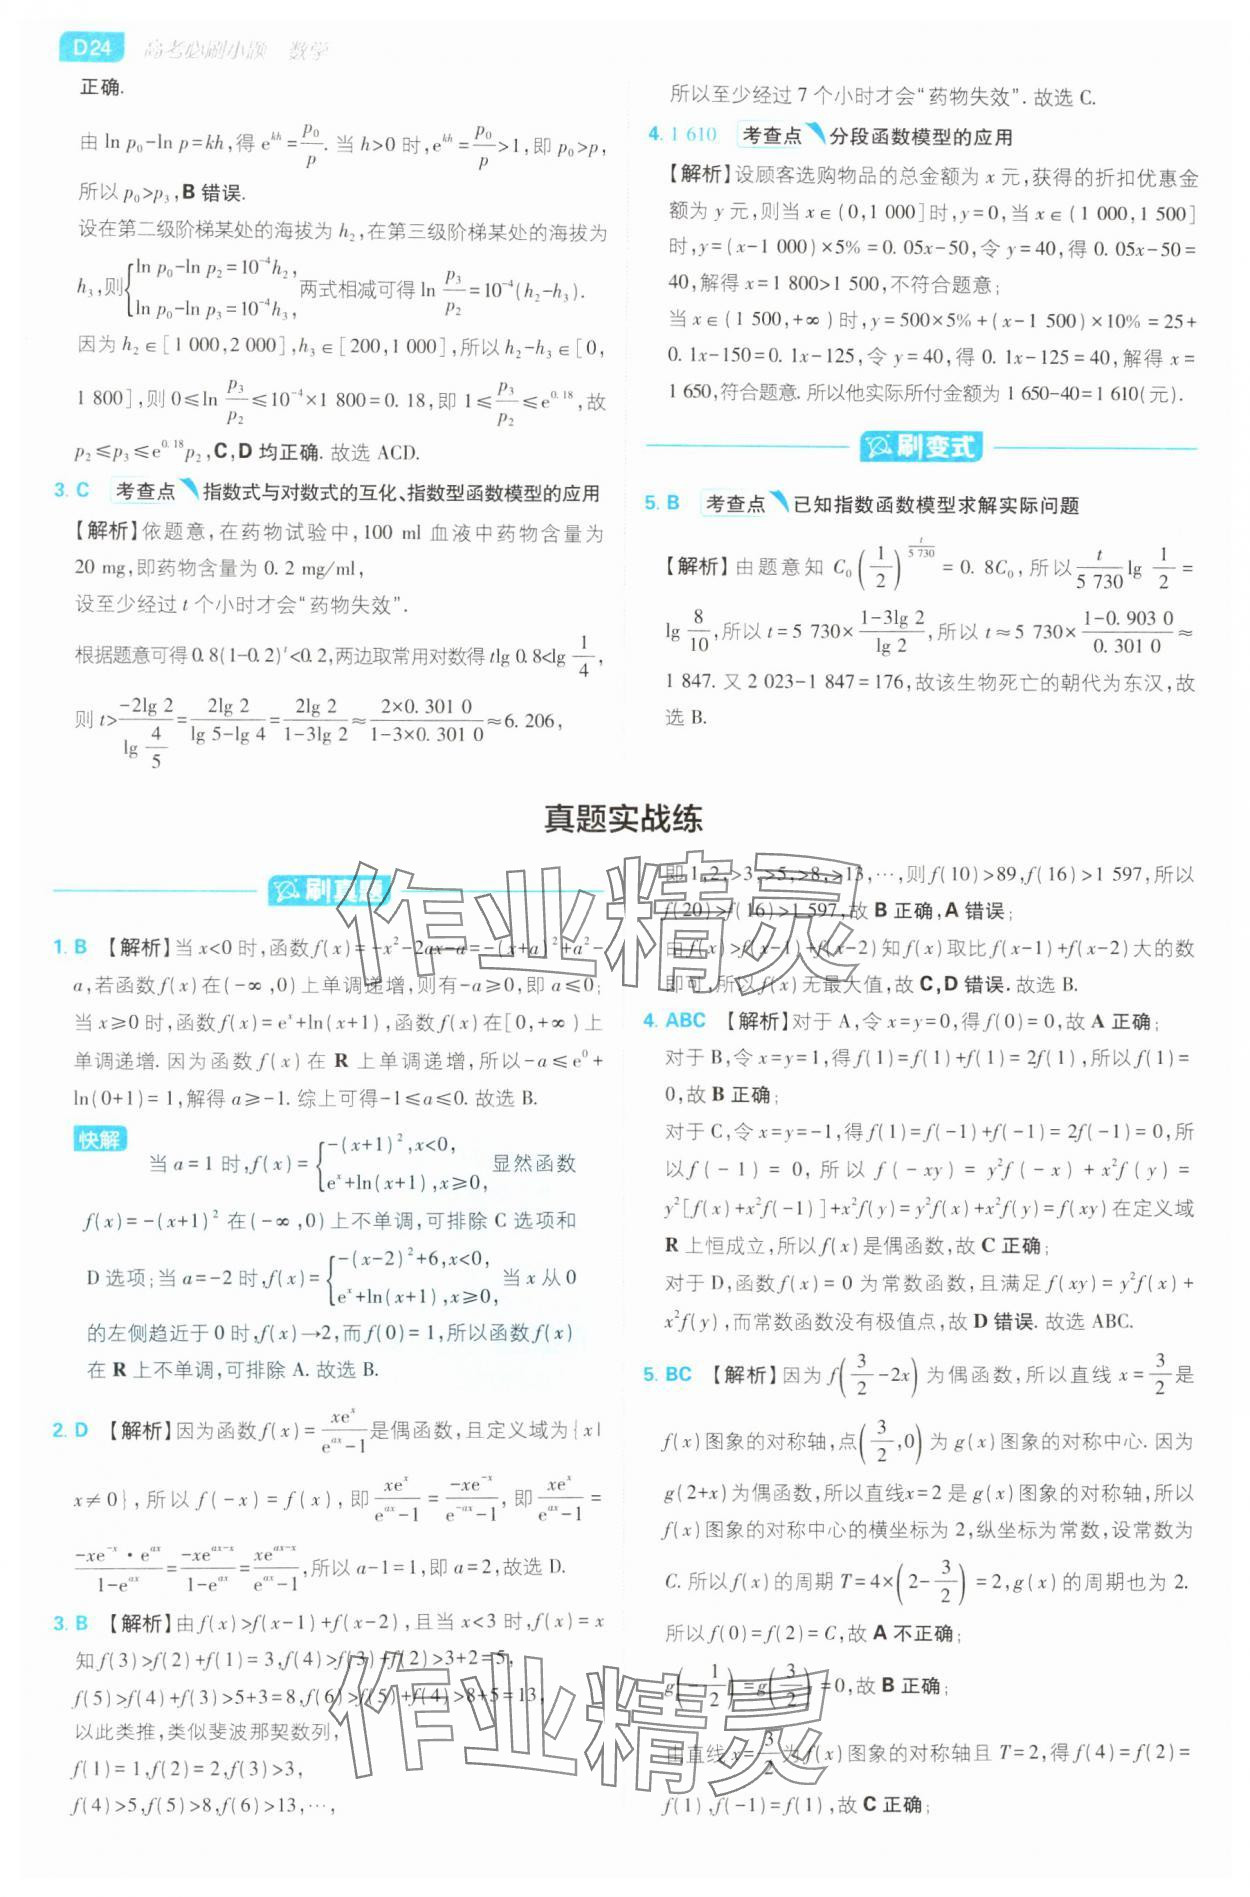 D24 高考必刷小题 数学
正确.
由 ln p₀-ln p=kh,得 e^{kh}=p₀/p. 当 h>0 时,e^{kh}=p₀/p>1,即 p₀>p,
所以 p₀>p₃,B 错误.
设在第二级阶梯某处的海拔为 h₂,在第三级阶梯某处的海拔为
h₃,则{ln p₀-ln p₂=10⁻⁴h₂, ln p₀-ln p₃=10⁻⁴h₃, 两式相减可得 ln p₃/p₂=10⁻⁴(h₂-h₃).
因为 h₂∈[1 000,2 000],h₃∈[200,1 000],所以 h₂-h₃∈[0,
1 800],则 0≤ln p₃/p₂≤10⁻⁴×1 800=0.18,即 1≤p₃/p₂≤e^{0.18},故
p₂≤p₃≤e^{0.18}p₂,C,D 均正确. 故选 ACD.
3. C 考查点 指数式与对数式的互化、指数型函数模型的应用
【解析】依题意,在药物试验中,100 ml 血液中药物含量为
20 mg,即药物含量为 0.2 mg/ml,
设至少经过 t 个小时才会“药物失效”.
根据题意可得 0.8(1-0.2)^t<0.2,两边取常用对数得 tlg 0.8<lg 1/4,
则 t>-2lg 2/lg 4/5=2lg 2/lg 5-lg 4=2lg 2/1-3lg 2≈2×0.301 0/1-3×0.301 0≈6.206,
所以至少经过 7 个小时才会“药物失效”. 故选 C.
4. 1 610 考查点 分段函数模型的应用
【解析】设顾客选购物品的总金额为 x 元,获得的折扣优惠金
额为 y 元,则当 x∈(0,1 000]时,y=0,当 x∈(1 000,1 500]
时,y=(x-1 000)×5%=0.05x-50,令 y=40,得 0.05x-50=
40,解得 x=1 800>1 500,不符合题意;
当 x∈(1 500,+∞)时,y=500×5%+(x-1 500)×10%=25+
0.1x-150=0.1x-125,令 y=40,得 0.1x-125=40,解得 x=
1 650,符合题意. 所以他实际所付金额为 1 650-40=1 610(元).
刷变式
5. B 考查点 已知指数函数模型求解实际问题
【解析】由题意知 C₀(1/2)^{t/5 730}=0.8C₀,所以 t/5 730 lg 1/2=
lg 8/10,所以 t=5 730×1-3lg 2/lg 2,所以 t≈5 730×1-0.903 0/0.301 0≈
1 847. 又 2 023-1 847=176,故该生物死亡的朝代为东汉,故
选 B.
真题实战练
刷真题
1. B 【解析】当 x<0 时,函数 f(x)=-x²-2ax-a=-(x+a)²+a²-
a,若函数 f(x)在(-∞,0)上单调递增,则有-a≥0,即 a≤0;
当 x≥0 时,函数 f(x)=eˣ+ln(x+1),函数 f(x)在[0,+∞)上
单调递增. 因为函数 f(x)在 R 上单调递增,所以-a≤e⁰+
ln(0+1)=1,解得 a≥-1. 综上可得-1≤a≤0. 故选 B.
快解
当 a=1 时,f(x)={-(x+1)²,x<0, eˣ+ln(x+1),x≥0, 显然函数
f(x)=-(x+1)²在(-∞,0)上不单调,可排除 C 选项和
D 选项;当 a=-2 时,f(x)={-(x-2)²+6,x<0, eˣ+ln(x+1),x≥0, 当 x 从 0
的左侧趋近于 0 时,f(x)→2,而 f(0)=1,所以函数 f(x)
在 R 上不单调,可排除 A. 故选 B.
2. D 【解析】因为函数 f(x)=xeˣ/e^{ax}-1是偶函数,且定义域为{x|
x≠0},所以 f(-x)=f(x),即 xeˣ/e^{ax}-1=-xe⁻ˣ/e^{-ax}-1,即 xeˣ/e^{ax}-1=
-xe⁻ˣ·e^{ax}/1-e^{ax}=-xe^{ax-x}/1-e^{ax}=xe^{ax-x}/e^{ax}-1,所以 a-1=1,即 a=2,故选 D.
3. B 【解析】由 f(x)>f(x-1)+f(x-2),且当 x<3 时,f(x)=x
知 f(3)>f(2)+f(1)=3,f(4)>f(3)+f(2)>3+2=5,
f(5)>f(4)+f(3)>5+3=8,f(6)>f(5)+f(4)>8+5=13,
以此类推,类似斐波那契数列,
f(1)=1,f(2)=2,f(3)>3,
f(4)>5,f(5)>8,f(6)>13,…,
即 1,2,>3,>5,>8,>13,…,则 f(10)>89,f(16)>1 597,所以
f(20)>f(16)>1 597,故 B 正确,A 错误;
由 f(x)>f(x-1)+f(x-2)知 f(x)取比 f(x-1)+f(x-2)大的数
即可,所以 f(x)无最大值,故 C,D 错误. 故选 B.
4. ABC 【解析】对于 A,令 x=y=0,得 f(0)=0,故 A 正确;
对于 B,令 x=y=1,得 f(1)=f(1)+f(1)=2f(1),所以 f(1)=
0,故 B 正确;
对于 C,令 x=y=-1,得 f(1)=f(-1)+f(-1)=2f(-1)=0,所
以 f(-1)=0,所以 f(-xy)=y²f(-x)+x²f(y)=
y²[f(x)+x²f(-1)]+x²f(y)=y²f(x)+x²f(y)=f(xy)在定义域
R 上恒成立,所以 f(x)是偶函数,故 C 正确;
对于 D,函数 f(x)=0 为常数函数,且满足 f(xy)=y²f(x)+
x²f(y),而常数函数没有极值点,故 D 错误. 故选 ABC.
5. BC 【解析】因为 f(3/2-2x)为偶函数,所以直线 x=3/2是
f(x)图象的对称轴,点(3/2,0)为 g(x)图象的对称中心. 因为
g(2+x)为偶函数,所以直线x=2 是 g(x)图象的对称轴,所以
f(x)图象的对称中心的横坐标为 2,纵坐标为常数,设常数为
C. 所以 f(x)的周期 T=4×(2-3/2)=2,g(x)的周期也为 2.
所以 f(0)=f(2)=C,故 A 不正确;
g(-1/2)=g(3/2)=0,故 B 正确;
由直线 x=3/2为 f(x)图象的对称轴且 T=2,得 f(4)=f(2)=
f(1),f(-1)=f(1),故 C 正确;
作业精灵
作业精灵